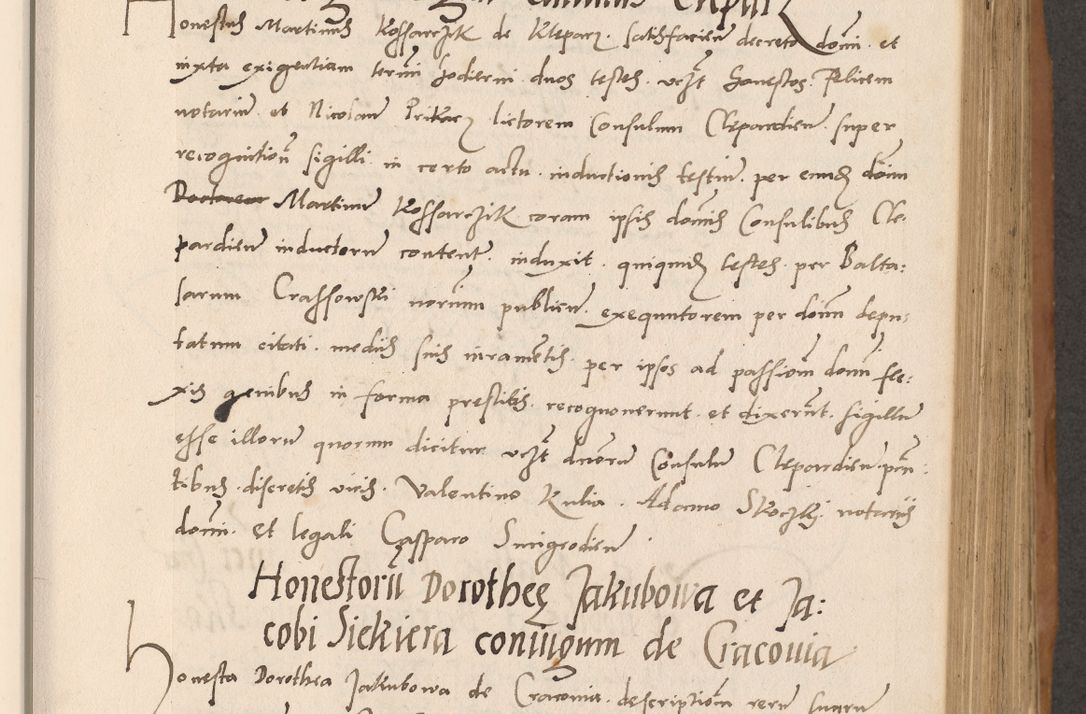 Honestus Martinus Kossarczik de Klepar. satisfaciendo decreto domini et
iuxta exigentiam termini hodierni duos testes videlicet honestos Felicem
notarium et Nicolaum Pritkarz lictorem Consulum Clepardien. super
recognitionem sigilli in certo actu inductionis testium per eundem domini
Martinum Kossarczik coram ipsis dominis Consulibus Cle:
pardien. inductorum content. induxit. quiquidem testes per Balta:
sarum Crassowski notarium publicum exequutorem per dominum depu:
tatum citati. mediis suis iuramentis per ipsos ad passionem domini fle:
xis genibus in forma prestitis recognoverunt et dixerunt sigillum
esse illorum quorum dicitur videlicet dominorum Consulum Clepardien. presen:
tibus discretis viris Valentino Kulia. Adamo Skoczky notariis
domini. et legali Casparo Smigrodien.
Honestorum Dorothee Jakubowa et Ja:
cobi Siekiera coniugum de Cracovia
Honesta Dorothea Jakubowa de Cracovia descriptionem rerum suarum